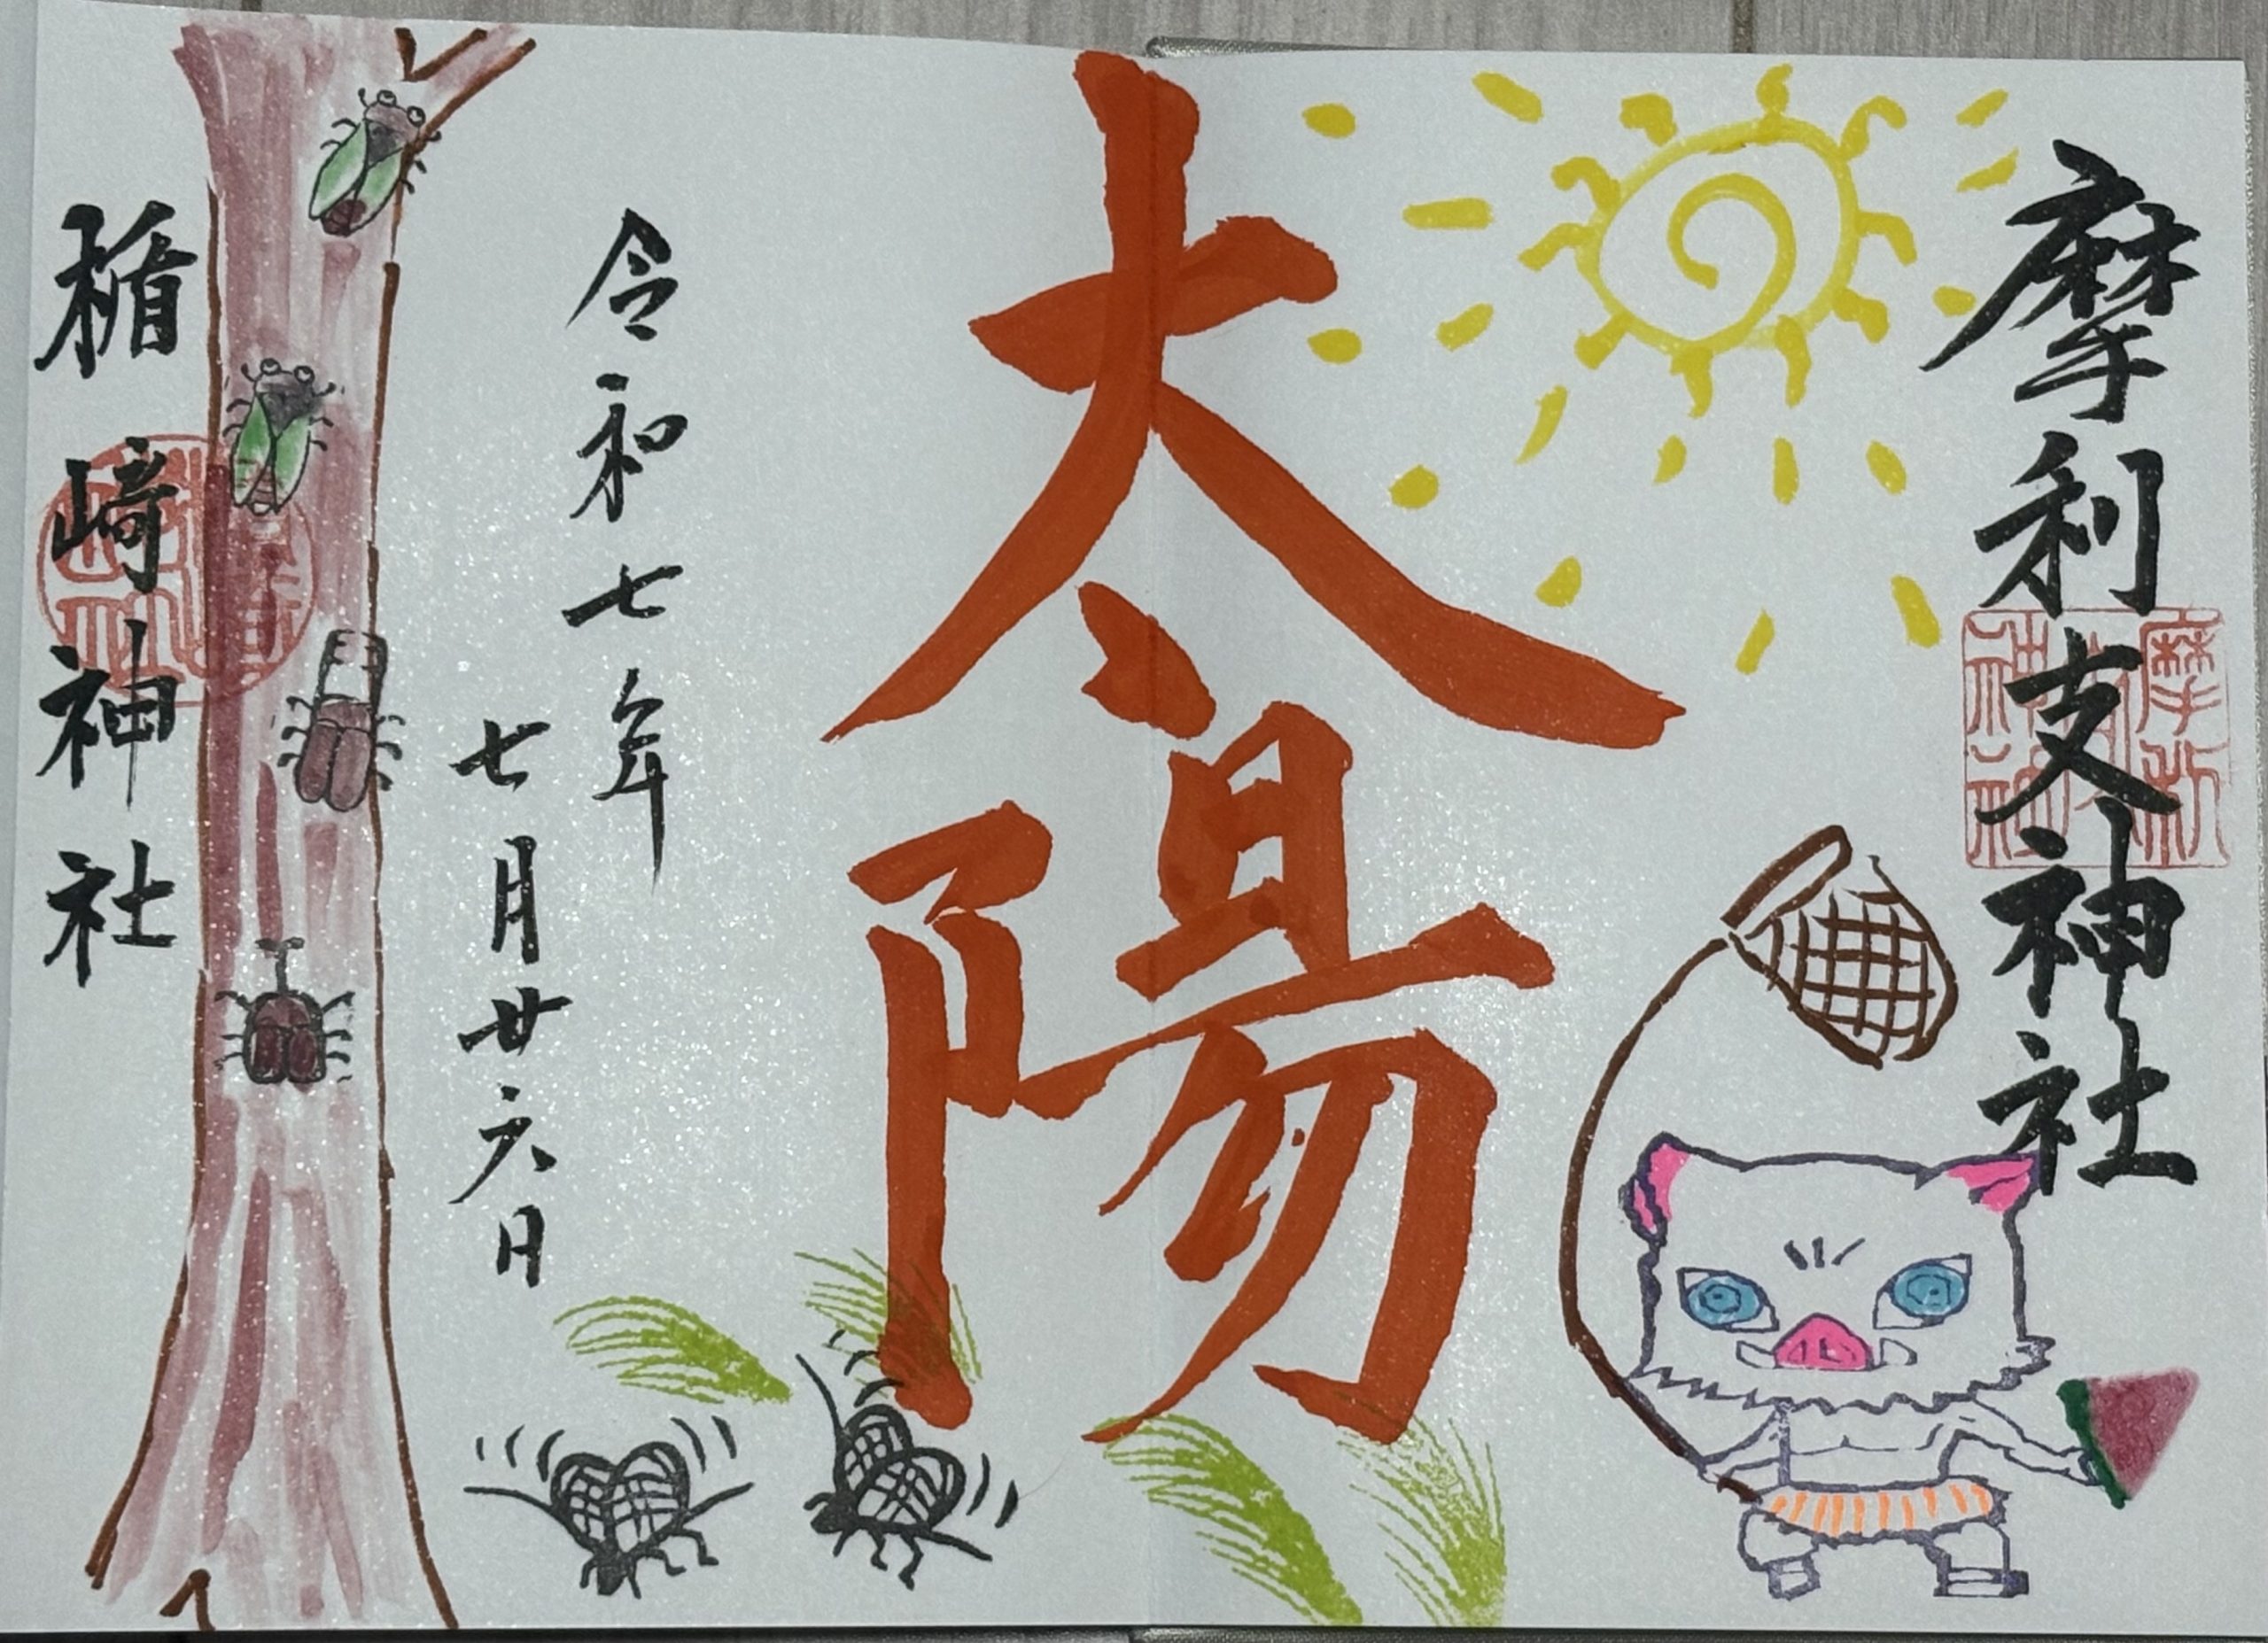 摩利支神社
太陽
令和七年
七月廿六日
楯崎神社